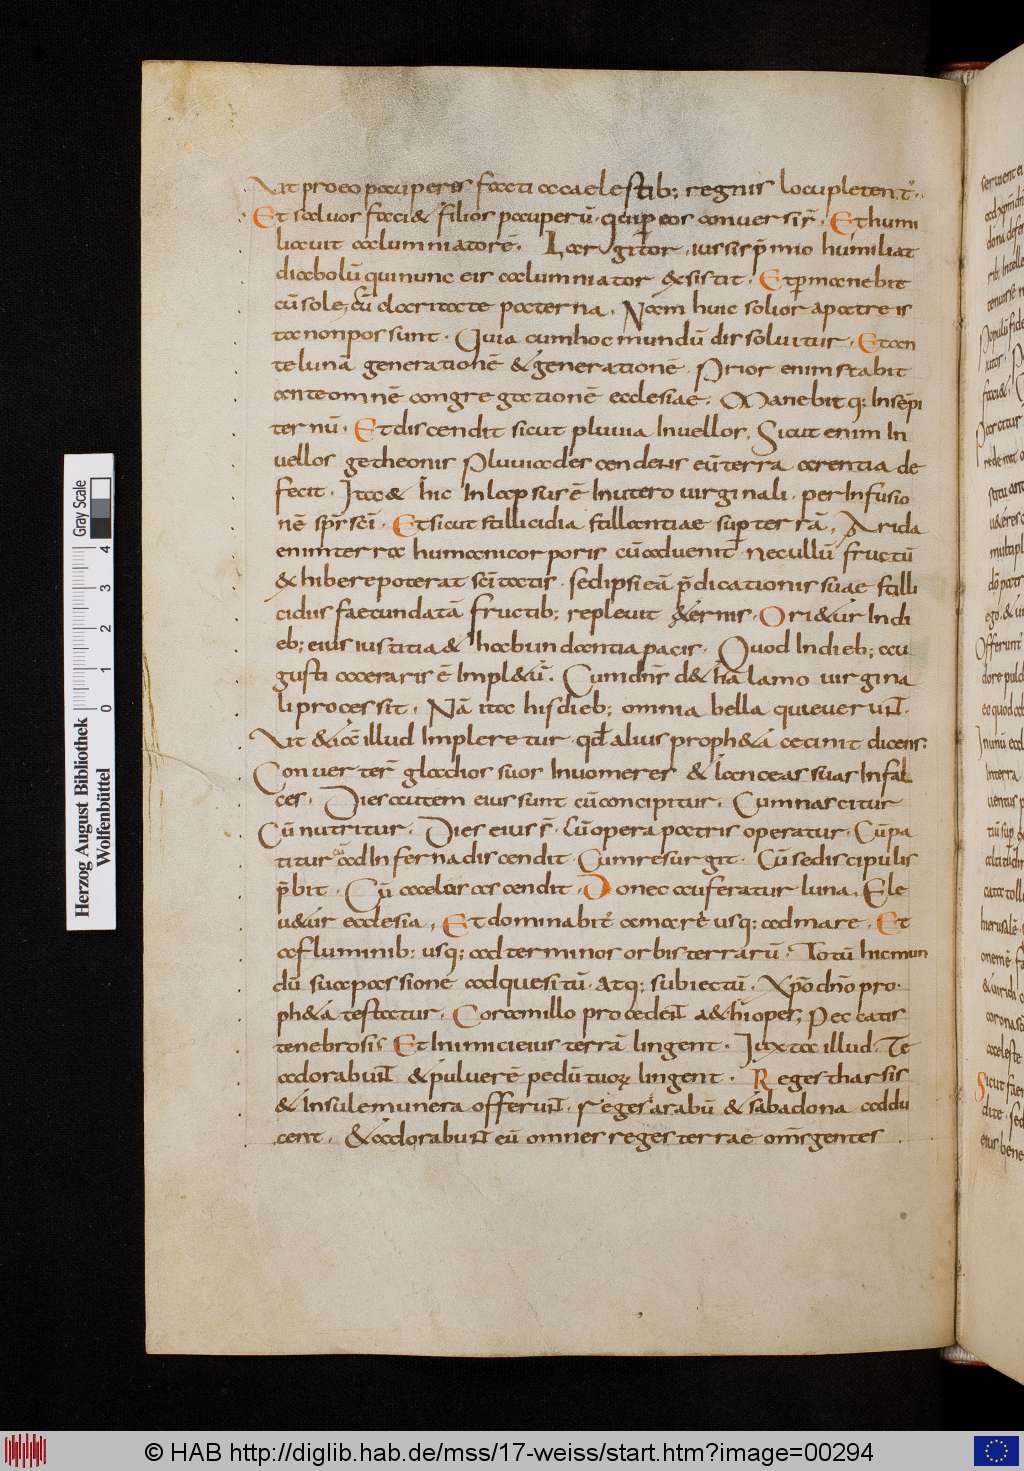 Ut pro eo pauperes facti a caelestib; regnis locupletent᷑.
Et saluos faci& filios pauperū. qui p eos conuersi s̄. Et humi
liauit calumniatorē. Largitor iussis p̄mio humiliat
diabolū qui nunc eis calumniator adsistit. Et pmanebit
cū sole. cū claritate paterna. Nam huic solio rapatre is
ta non possunt. Quia cum hoc mundū dissoluitur. Et an
te lunā generationē & generationē. Prior enim stabit
ante omnē congregationē ecclesiae. Manebitq; In sēpi
ternū. Et discendit sicut pluuia In uellos. Sicut enim In
uellos getheonis Pluuia descendens eū terra arentia de
fecit. Ita & hic Inlapsus ē In utero uirginali. per Infusio
nē sp̄s sc̄i. Et sicut stillicidia stillantiae sup terrā. Arida
enim terra humani corporis cū aduenit nec ullū fructū
exhibere poterat sc̄itatis. sed ipsi eā p̄dicationis suae stilli
cidiis faecundatā fructib; repleuit &ernis. Ori&ur In di
eb; eius iustitia & habundantia pacis. Quod In dieb; au
gusti caesaris ē Impl&ū. Cum dn̄s de thalamo uirgina
li processit. Nā ita his dieb; omnia bella quieuerunt.
Ut &iā illud Impleretur. qđ alius proph&a cecinit dicens.
Conuertent gladios suos In uomeres & lanceas suas In fal
ces. Dies autem eius sunt cū concipitur. Cum nascitur
Cū nutritur. Dies eius s̄. cū opera patris operatur. Cū pa
titur cū ad Inferna discendit. Cum resurgit. Cū se discipulis
p̄bit. Cū caelos ascendit. Donec auferatur luna. Ele
u&ur ecclesia. Et dominabit᷑ a mare usq; ad mare. Et
a fluminib; usq; ad terminos orbis terrarū. Totū hic mun
dū sua passione adquesitū. Atq; subiectū. Xp̄o dn̄o pro
ph&a testatur. Coram illo procedent a&hiopes; Peccatis
tenebrosi. Et Inimici eius terrā lingent. Iuxta illud. Te
adorabunt & puluerē pedū tuoꝝ lingent. Reges tharsis
& Insule munera offerunt. reges arabū & saba dona addu
cent. & adorabunt eū omnes reges terrae om̄s gentes
Herzog August Bibliothek
Wolfenbüttel
Gray Scale
0 1 2 3 4
© HAB http://diglib.hab.de/mss/17-weiss/start.htm?image=00294